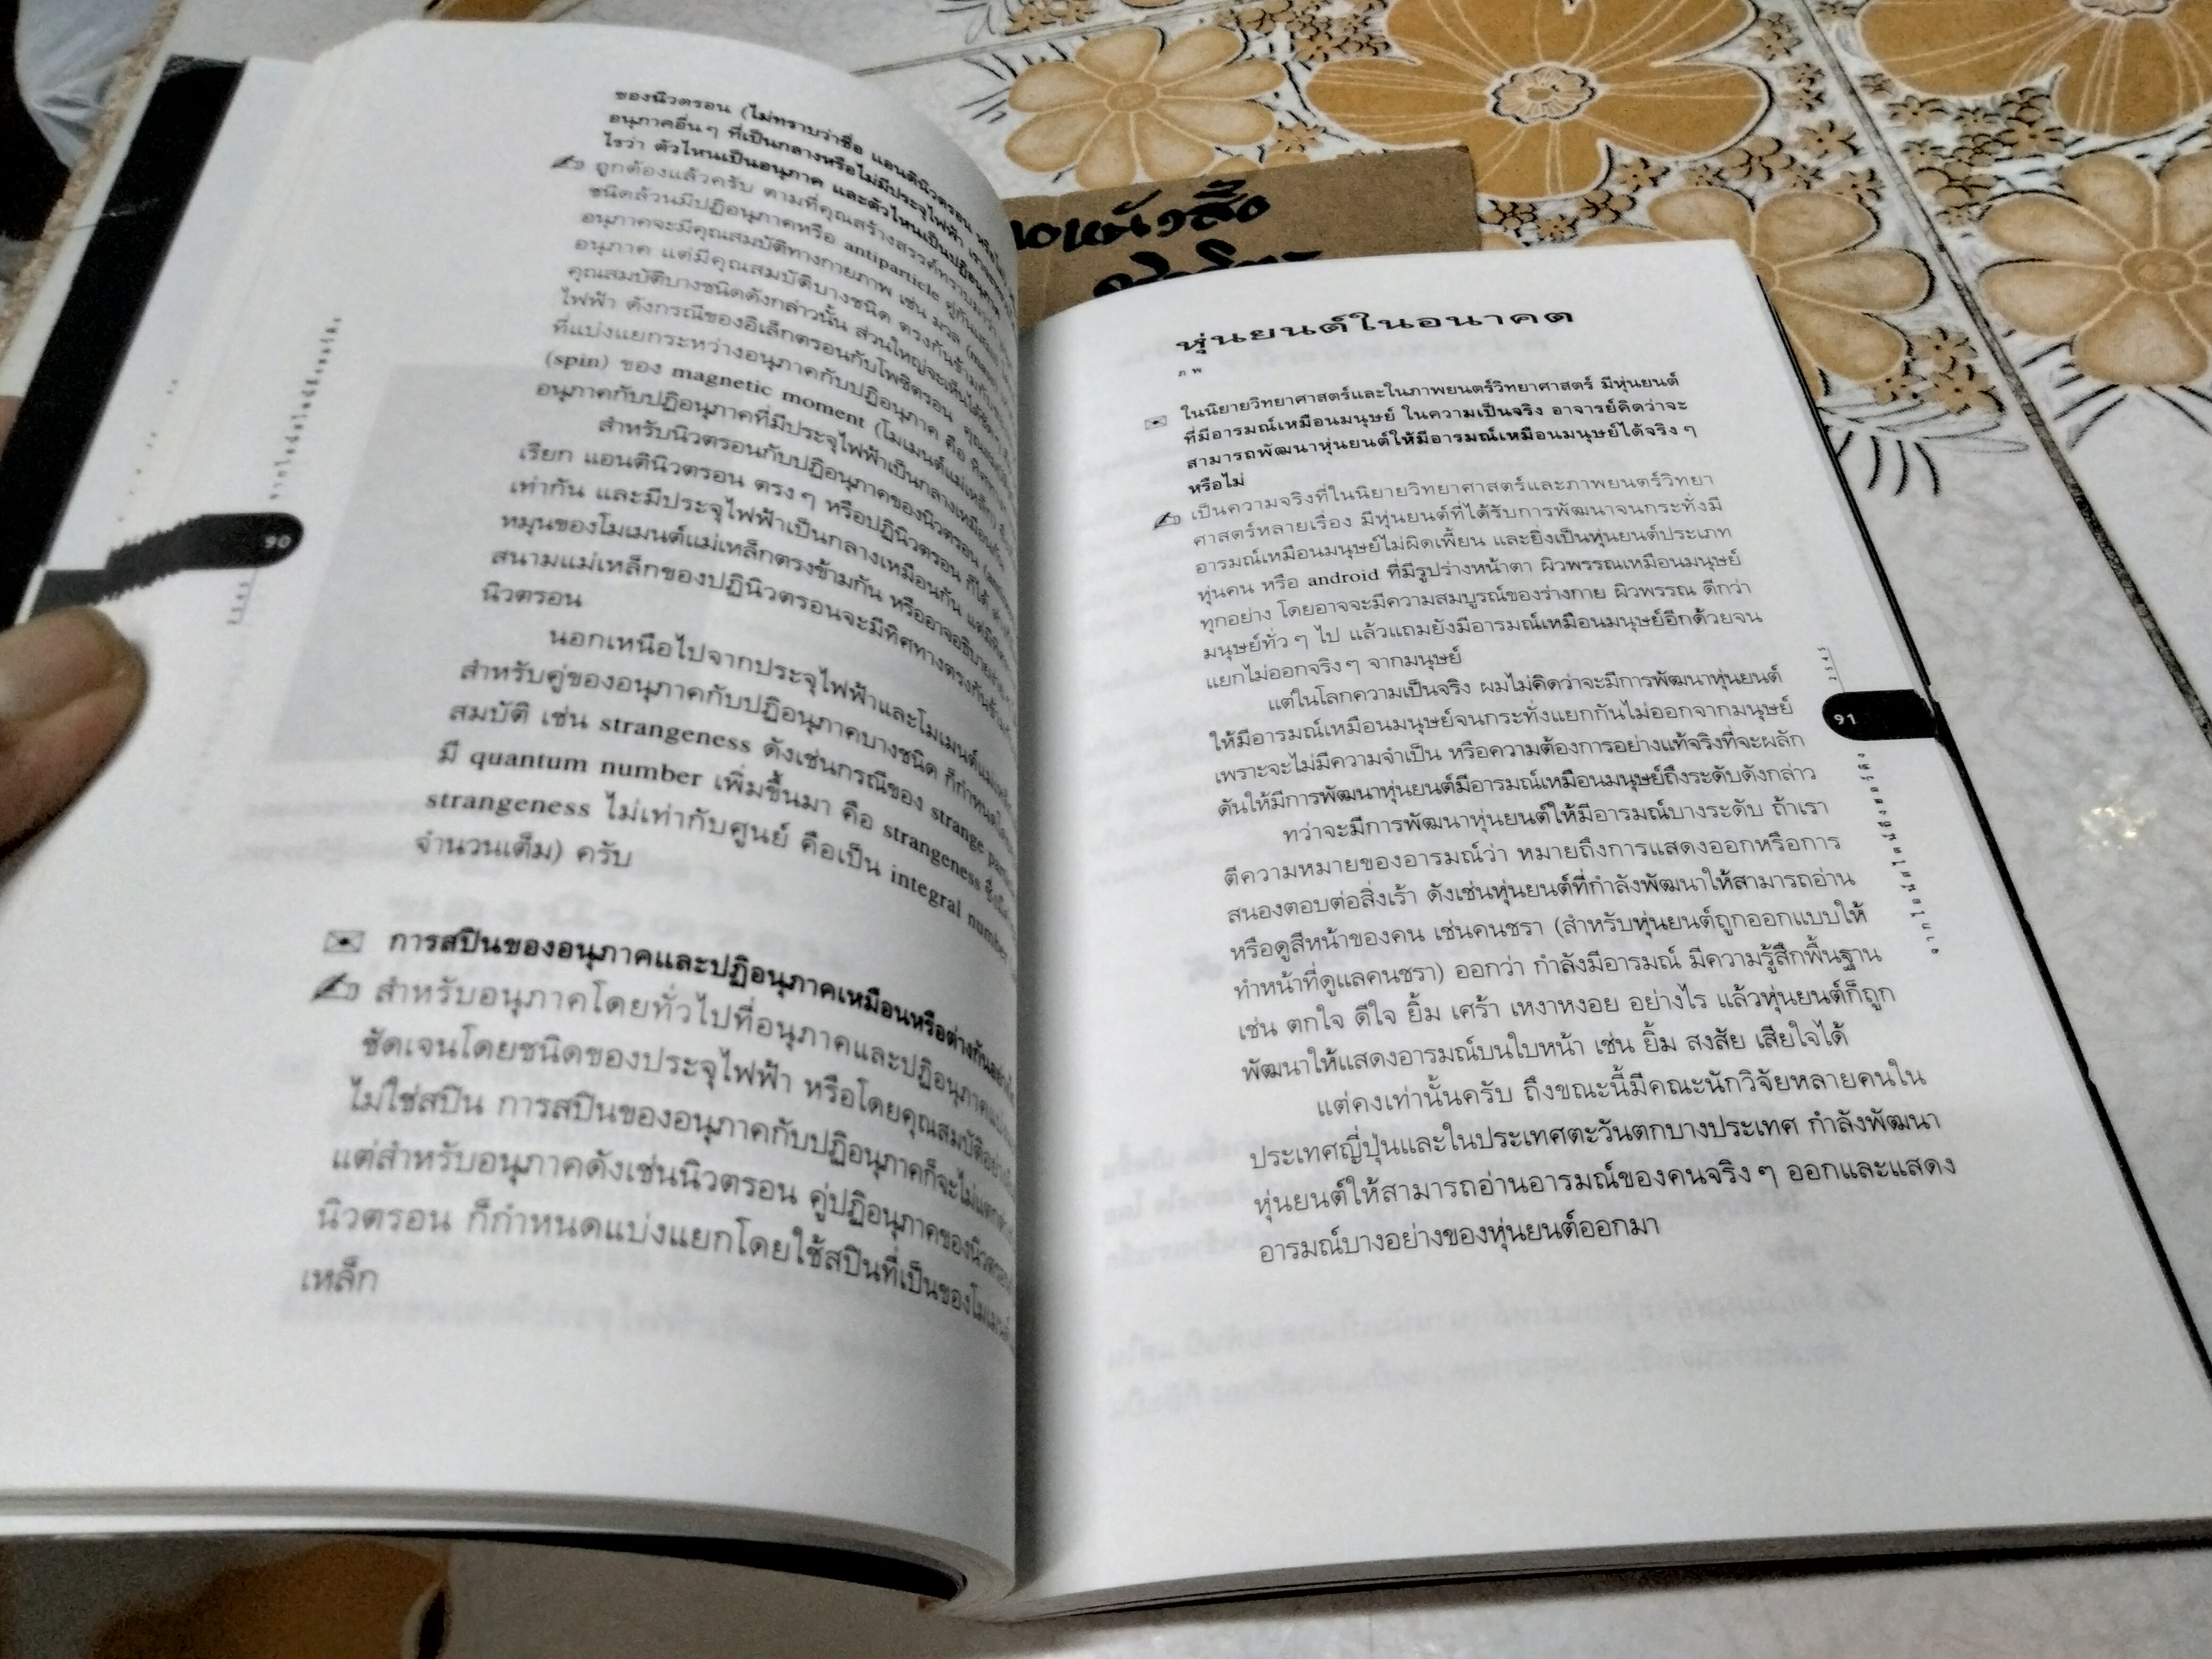 ของนิวตรอน (ไม่ทราบว่าชื่อ แอนตินิวตรอน
อนุภาคอื่นๆ ที่เป็นกลางหรือไม่มีประจุไฟฟ้า
ไรว่า ตัวไหนเป็นอนุภาค และตัวไหนเป็นปฏิอนุภาค
ถูกต้องแล้วครับ ตามที่คุณสร้างสรรค์ทราบมาว่า
ชนิดล้วนมีปฏิอนุภาคหรือ antiparticle คู่กันเสมอ
อนุภาคจะมีคุณสมบัติทางกายภาพ เช่น มวล (mass)
อนุภาค แต่มีคุณสมบัติบางชนิด ตรงกันข้ามกัน
คุณสมบัติบางชนิดดังกล่าวนั้น ส่วนใหญ่จะเห็นได้ชัด
ไฟฟ้า ดังกรณีของอิเล็กตรอนกับโพซิตรอน
ที่แบ่งแยกระหว่างอนุภาคกับปฏิอนุภาค คือ ทิศทาง
(spin) ของ magnetic moment (โมเมนต์แม่เหล็ก)
อนุภาคกับปฏิอนุภาคที่มีประจุไฟฟ้าเป็นกลางเหมือนกัน
สำหรับนิวตรอนกับปฏิอนุภาคของนิวตรอน
เรียก แอนตินิวตรอน ตรงๆ หรือปฏินิวตรอน ก็ได้
เท่ากัน และมีประจุไฟฟ้าเป็นกลางเหมือนกัน แต่มีทิศ
หมุนของโมเมนต์แม่เหล็กตรงข้ามกัน หรืออาจอธิบาย
สนามแม่เหล็กของปฏินิวตรอนจะมีทิศทางตรงกันข้าม
นิวตรอน
นอกเหนือไปจากประจุไฟฟ้าและโมเมนต์แม่เหล็ก
สำหรับคู่ของอนุภาคกับปฏิอนุภาคบางชนิด ก็กำหนดโดย
สมบัติ เช่น strangeness ดังเช่นกรณีของ strange
มี quantum number เพิ่มขึ้นมา คือ strangeness ซึ่ง
strangeness ไม่เท่ากับศูนย์ คือเป็น integral number
จำนวนเต็ม) ครับ
การสปินของอนุภาคและปฏิอนุภาคเหมือนหรือต่างกันอย่างไร
สำหรับอนุภาคโดยทั่วไปที่อนุภาคและปฏิอนุภาค
ชัดเจนโดยชนิดของประจุไฟฟ้า หรือโดยคุณสมบัติอย่างอื่น
ไม่ใช่สปิน การสปินของอนุภาคกับปฏิอนุภาคก็จะไม่แตกต่าง
แต่สำหรับอนุภาคดังเช่นนิวตรอน คู่ปฏิอนุภาคของนิวตรอน
นิวตรอน ก็กำหนดแบ่งแยกโดยใช้สปินที่เป็นของโมเมนต์
เหล็ก
90
หุ่นยนต์ในอนาคต
ภพ
ในนิยายวิทยาศาสตร์และในภาพยนตร์วิทยาศาสตร์ มีหุ่นยนต์
ที่มีอารมณ์เหมือนมนุษย์ ในความเป็นจริง อาจารย์คิดว่าจะ
สามารถพัฒนาหุ่นยนต์ให้มีอารมณ์เหมือนมนุษย์ได้จริงๆ
หรือไม่
เป็นความจริงที่ในนิยายวิทยาศาสตร์และภาพยนตร์วิทยา
ศาสตร์หลายเรื่อง มีหุ่นยนต์ที่ได้รับการพัฒนาจนกระทั่งมี
อารมณ์เหมือนมนุษย์ไม่ผิดเพี้ยน และยิ่งเป็นหุ่นยนต์ประเภท
หุ่นคน หรือ android ที่มีรูปร่างหน้าตา ผิวพรรณเหมือนมนุษย์
ทุกอย่าง โดยอาจจะมีความสมบูรณ์ของร่างกาย ผิวพรรณ ดีกว่า
มนุษย์ทั่วๆ ไป แล้วแถมยังมีอารมณ์เหมือนมนุษย์อีกด้วยจน
แยกไม่ออกจริงๆ จากมนุษย์
แต่ในโลกความเป็นจริง ผมไม่คิดว่าจะมีการพัฒนาหุ่นยนต์
ให้มีอารมณ์เหมือนมนุษย์จนกระทั่งแยกกันไม่ออกจากมนุษย์
เพราะจะไม่มีความจำเป็น หรือความต้องการอย่างแท้จริงที่จะผลัก
ดันให้มีการพัฒนาหุ่นยนต์มีอารมณ์เหมือนมนุษย์ถึงระดับดังกล่าว
ทว่าจะมีการพัฒนาหุ่นยนต์ให้มีอารมณ์บางระดับ ถ้าเรา
ตีความหมายของอารมณ์ว่า หมายถึงการแสดงออกหรือการ
สนองตอบต่อสิ่งเร้า ดังเช่นหุ่นยนต์ที่กำลังพัฒนาให้สามารถอ่าน
หรือดูสีหน้าของคน เช่นคนชรา (สำหรับหุ่นยนต์ถูกออกแบบให้
ทำหน้าที่ดูแลคนชรา) ออกว่า กำลังมีอารมณ์ มีความรู้สึกพื้นฐาน
เช่น ตกใจ ดีใจ ยิ้ม เศร้า เหงาหงอย อย่างไร แล้วหุ่นยนต์ก็ถูก
พัฒนาให้แสดงอารมณ์บนใบหน้า เช่น ยิ้ม สงสัย เสียใจได้
แต่คงเท่านั้นครับ ถึงขณะนี้มีคณะนักวิจัยหลายคนใน
ประเทศญี่ปุ่นและในประเทศตะวันตกบางประเทศ กำลังพัฒนา
หุ่นยนต์ให้สามารถอ่านอารมณ์ของคนจริงๆ ออกและแสดง
อารมณ์บางอย่างของหุ่นยนต์ออกมา
2543
91